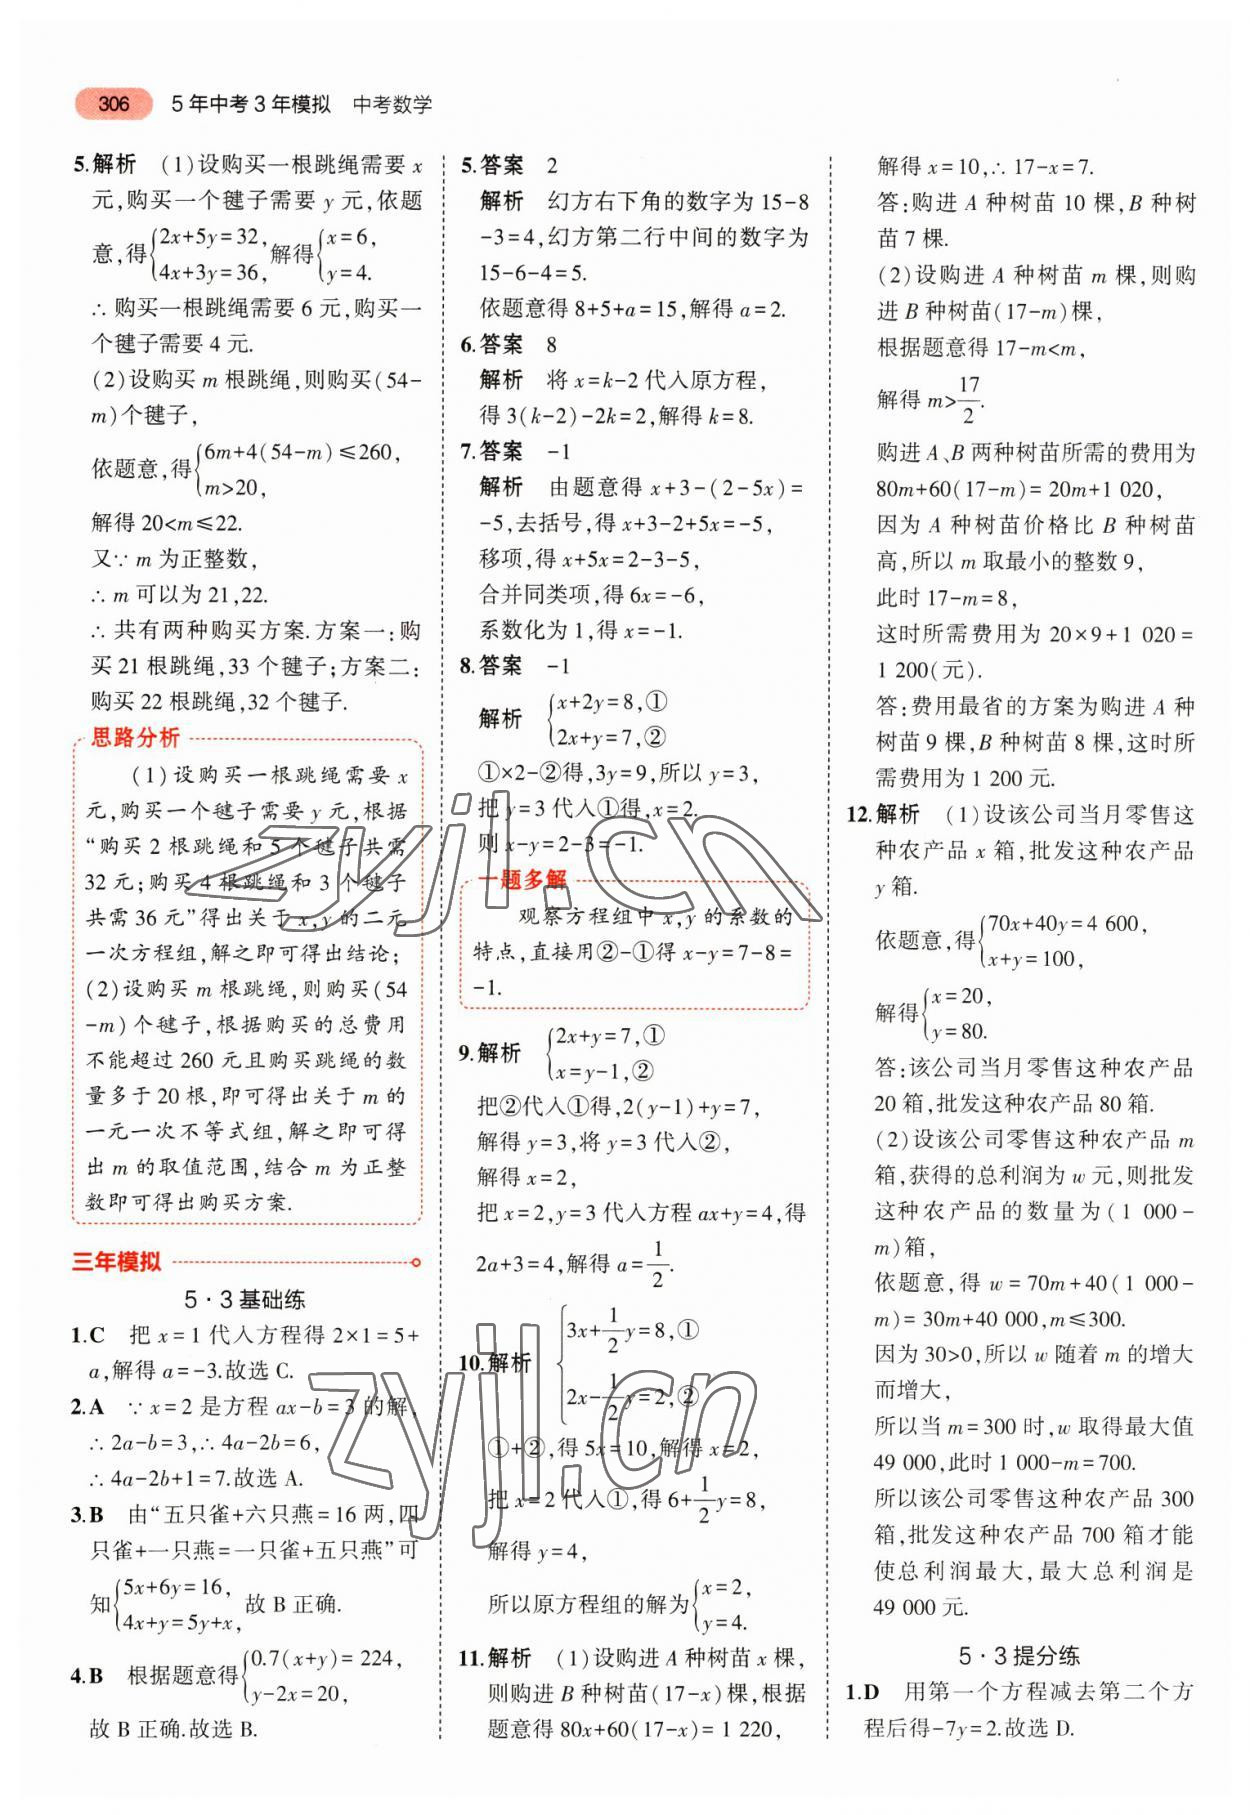 306 5年中考3年模拟 中考数学
5.解析 (1)设购买一根跳绳需要 x
元,购买一个毽子需要 y 元,依题
意,得{2x+5y=32, 4x+3y=36, 解得{x=6, y=4.
∴购买一根跳绳需要 6 元,购买一
个毽子需要 4 元.
(2)设购买 m 根跳绳,则购买(54-
m)个毽子,
依题意,得{6m+4(54-m)≤260, m>20,
解得 20<m≤22.
又∵ m 为正整数,
∴ m 可以为 21,22.
∴共有两种购买方案.方案一:购
买 21 根跳绳,33 个毽子;方案二:
购买 22 根跳绳,32 个毽子.
思路分析
(1)设购买一根跳绳需要 x
元,购买一个毽子需要 y 元,根据
“购买 2 根跳绳和 5 个毽子共需
32 元;购买 4 根跳绳和 3 个毽子
共需 36 元”得出关于 x,y 的二元
一次方程组,解之即可得出结论;
(2)设购买 m 根跳绳,则购买(54
-m)个毽子,根据购买的总费用
不能超过 260 元且购买跳绳的数
量多于 20 根,即可得出关于 m 的
一元一次不等式组,解之即可得
出 m 的取值范围,结合 m 为正整
数即可得出购买方案.
三年模拟
5·3基础练
1.C 把 x=1 代入方程得 2×1=5+
a,解得 a=-3.故选 C.
2.A ∵ x=2 是方程 ax-b=3 的解,
∴ 2a-b=3,∴ 4a-2b=6,
∴ 4a-2b+1=7.故选 A.
3.B 由“五只雀+六只燕=16 两,四
只雀+一只燕=一只雀+五只燕”可
知{5x+6y=16, 4x+y=5y+x, 故 B 正确.
4.B 根据题意得{0.7(x+y)=224, y-2x=20,
故 B 正确.故选 B.
5.答案 2
解析 幻方右下角的数字为 15-8
-3=4,幻方第二行中间的数字为
15-6-4=5.
依题意得 8+5+a=15,解得 a=2.
6.答案 8
解析 将 x=k-2 代入原方程,
得 3(k-2)-2k=2,解得 k=8.
7.答案 -1
解析 由题意得 x+3-(2-5x)=
-5,去括号,得 x+3-2+5x=-5,
移项,得 x+5x=2-3-5,
合并同类项,得 6x=-6,
系数化为 1,得 x=-1.
8.答案 -1
解析 {x+2y=8,① 2x+y=7,②
①×2-②得,3y=9,所以 y=3,
把 y=3 代入①得,x=2.
则 x-y=2-3=-1.
一题多解
观察方程组中 x,y 的系数的
特点,直接用②-①得 x-y=7-8=
-1.
9.解析 {2x+y=7,① x=y-1,②
把②代入①得,2(y-1)+y=7,
解得 y=3,将 y=3 代入②,
解得 x=2,
把 x=2,y=3 代入方程 ax+y=4,得
2a+3=4,解得 a=1/2.
10.解析 {3x+1/2y=8,① 2x-1/2y=2,②
①+②,得 5x=10,解得 x=2,
把 x=2 代入①,得 6+1/2y=8,
解得 y=4,
所以原方程组的解为{x=2, y=4.
11.解析 (1)设购进 A 种树苗 x 棵,
则购进 B 种树苗(17-x)棵,根据
题意得 80x+60(17-x)=1 220,
解得 x=10,∴ 17-x=7.
答:购进 A 种树苗 10 棵,B 种树
苗 7 棵.
(2)设购进 A 种树苗 m 棵,则购
进 B 种树苗(17-m)棵,
根据题意得 17-m<m,
解得 m>17/2.
购进 A、B 两种树苗所需的费用为
80m+60(17-m)=20m+1 020,
因为 A 种树苗价格比 B 种树苗
高,所以 m 取最小的整数 9,
此时 17-m=8,
这时所需费用为 20×9+1 020=
1 200(元).
答:费用最省的方案为购进 A 种
树苗 9 棵,B 种树苗 8 棵,这时所
需费用为 1 200 元.
12.解析 (1)设该公司当月零售这
种农产品 x 箱,批发这种农产品
y 箱.
依题意,得{70x+40y=4 600, x+y=100,
解得{x=20, y=80.
答:该公司当月零售这种农产品
20 箱,批发这种农产品 80 箱.
(2)设该公司零售这种农产品 m
箱,获得的总利润为 w 元,则批发
这种农产品的数量为(1 000-
m)箱,
依题意,得 w=70m+40(1 000-
m)=30m+40 000,m≤300.
因为 30>0,所以 w 随着 m 的增大
而增大,
所以当 m=300 时,w 取得最大值
49 000,此时 1 000-m=700.
所以该公司零售这种农产品 300
箱,批发这种农产品 700 箱才能
使总利润最大,最大总利润是
49 000 元.
5·3提分练
1.D 用第一个方程减去第二个方
程后得-7y=2.故选 D.
zyjl.cn
zyjl.cn